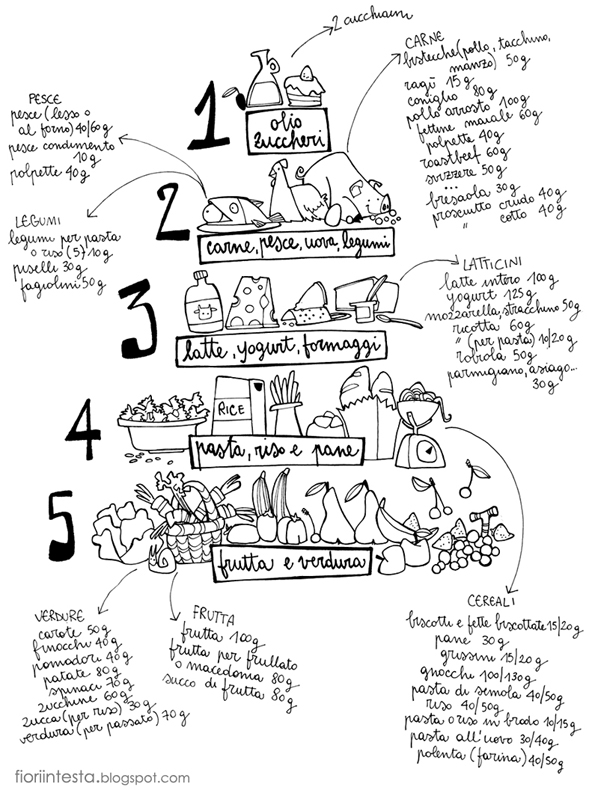 2 cucchiaini
1
olio
zuccheri
CARNE
bistecche (pollo, tacchino,
manzo) 50g
ragù 15g
coniglio 80g
pollo arrosto 100g
fettine maiale 60g
polpette 40g
roastbeef 60g
svizzere 50g
...
bresaola 30g
prosciutto crudo 40g
" cotto 40g
PESCE
pesce (lesso o
al forno) 40/60g
pesce condimento
10g
polpette 40g
2
carne, pesce, uova, legumi
LEGUMI
legumi per pasta
o riso (5) 10g
piselli 30g
fagiolini 50g
3
latte, yogurt, formaggi
LATTICINI
latte intero 100g
yogurt 125g
mozzarella, stracchino 50g
ricotta 60g
" (per pasta) 10/20g
robiola 50g
parmigiano, asiago...
30g
4
RICE
pasta, riso e pane
5
frutta e verdura
VERDURE
carote 50g
finocchi 40g
pomodori 40g
patate 80g
spinaci 70g
zucchine 60g
zucca (per riso) 30g
verdura (per passato) 70g
FRUTTA
frutta 100g
frutta per frullato
o macedonia 80g
succo di frutta 80g
CEREALI
biscotti e fette biscottate 15/20g
pane 30g
grissini 15/20g
gnocchi 100/130g
pasta di semola 40/50g
riso 40/50g
pasta o riso in brodo 10/15g
pasta all'uovo 30/40g
polenta (farina) 40/50g
fioriintesta.blogspot.com